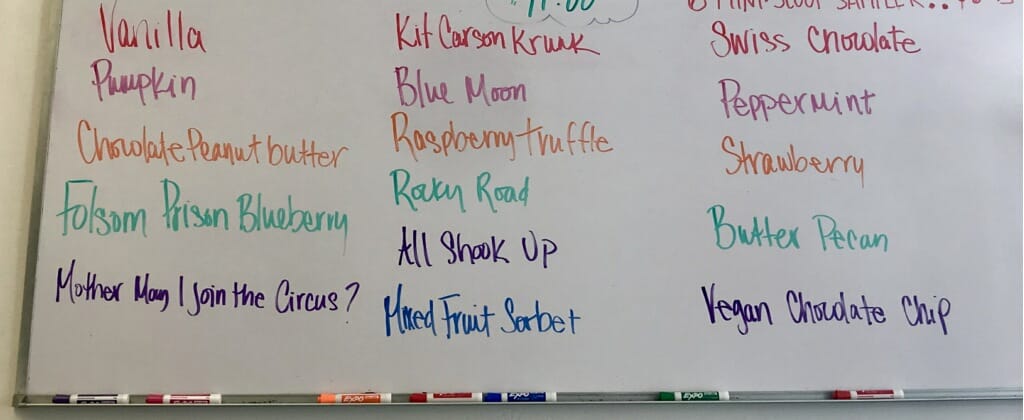 $11.00
Vanilla
Pumpkin
Chocolate Peanut butter
Folsom Prison Blueberry
Mother May I Join the Circus?
Kit Carson Krunk
Blue Moon
Raspberry truffle
Rocky Road
All Shook Up
Mixed Fruit Sorbet
Swiss Chocolate
Peppermint
Strawberry
Butter Pecan
Vegan Chocolate Chip
EXPO
EXPO
EXPO